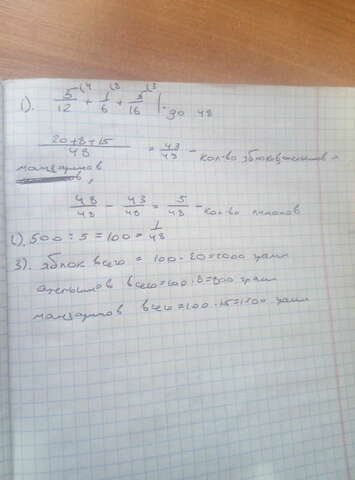 1). 5/12 (4 + 1/6 (8 + 5/16 (3 | · до 48
20+8+15/48 = 43/48 - кол-во яблок, апельсинов и
мандаринов,
48/48 - 43/48 = 5/48 - кол-во лимонов
2). 500 : 5 = 100 = 1/48
3). яблок всего = 100 · 20 = 2000 грамм
апельсинов всего = 100 · 8 = 800 грамм
мандаринов всего = 100 · 15 = 1500 грамм